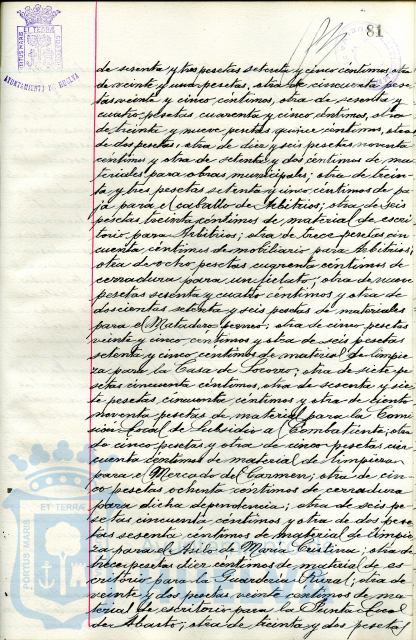 81
PORTUS MARIS
ET TERRAE
CUSTODIA
AYUNTAMIENTO DE HUELVA
de sesenta y tres pesetas setenta y cinco céntimos, otra
de veinte y una pesetas, otra de cincuenta pese
tas veinte y cinco céntimos, otra de sesenta y
cuatro pesetas cuarenta y cinco céntimos, otra
de treinta y nueve pesetas quince céntimos, otra
de dos pesetas, otra de diez y seis pesetas noventa
céntimos y otra de setenta y dos céntimos de ma
teriales para obras municipales; otra de trein
ta y tres pesetas setenta y cinco céntimos de pa
ja para el caballo de Arbitrios; otra de seis
pesetas treinta céntimos de material de escri
torio para Arbitrios; otra de trece pesetas cin
cuenta céntimos de mobiliario para Arbitrios;
otra de ocho pesetas cuarenta céntimos de
cerradura para un fielato; otra de nueve
pesetas sesenta y cuatro céntimos y otra de
doscientas setenta y seis pesetas de materiales
para el Matadero; otra de cinco pesetas
veinte y cinco céntimos y otra de seis pesetas
setenta y cinco céntimos de material de limpie
za para la Casa de Socorro; otra de siete pe
setas cincuenta céntimos, otra de sesenta y sie
te pesetas cincuenta céntimos y otra de ciento
noventa pesetas de material para la Comi
sión local de Subsidio al Combatiente; otra
de cinco pesetas y otra de cinco pesetas cin
cuenta céntimos de material de limpieza
para el Mercado del Carmen; otra de cin
co pesetas ochenta céntimos de cerradura
para dicha dependencia; otra de seis pe
setas cincuenta céntimos y otra de dos pese
tas sesenta céntimos de material de limpie
za para el Asilo de María Cristina; otra de
trece pesetas diez céntimos de material de es
critorio para la Guardería Rural; otra de
veinte y dos pesetas veinte céntimos de ma
terial de escritorio para la Junta Local
de; otra de treinta y dos pesetas
ET TERRAE
PORTUS MARIS